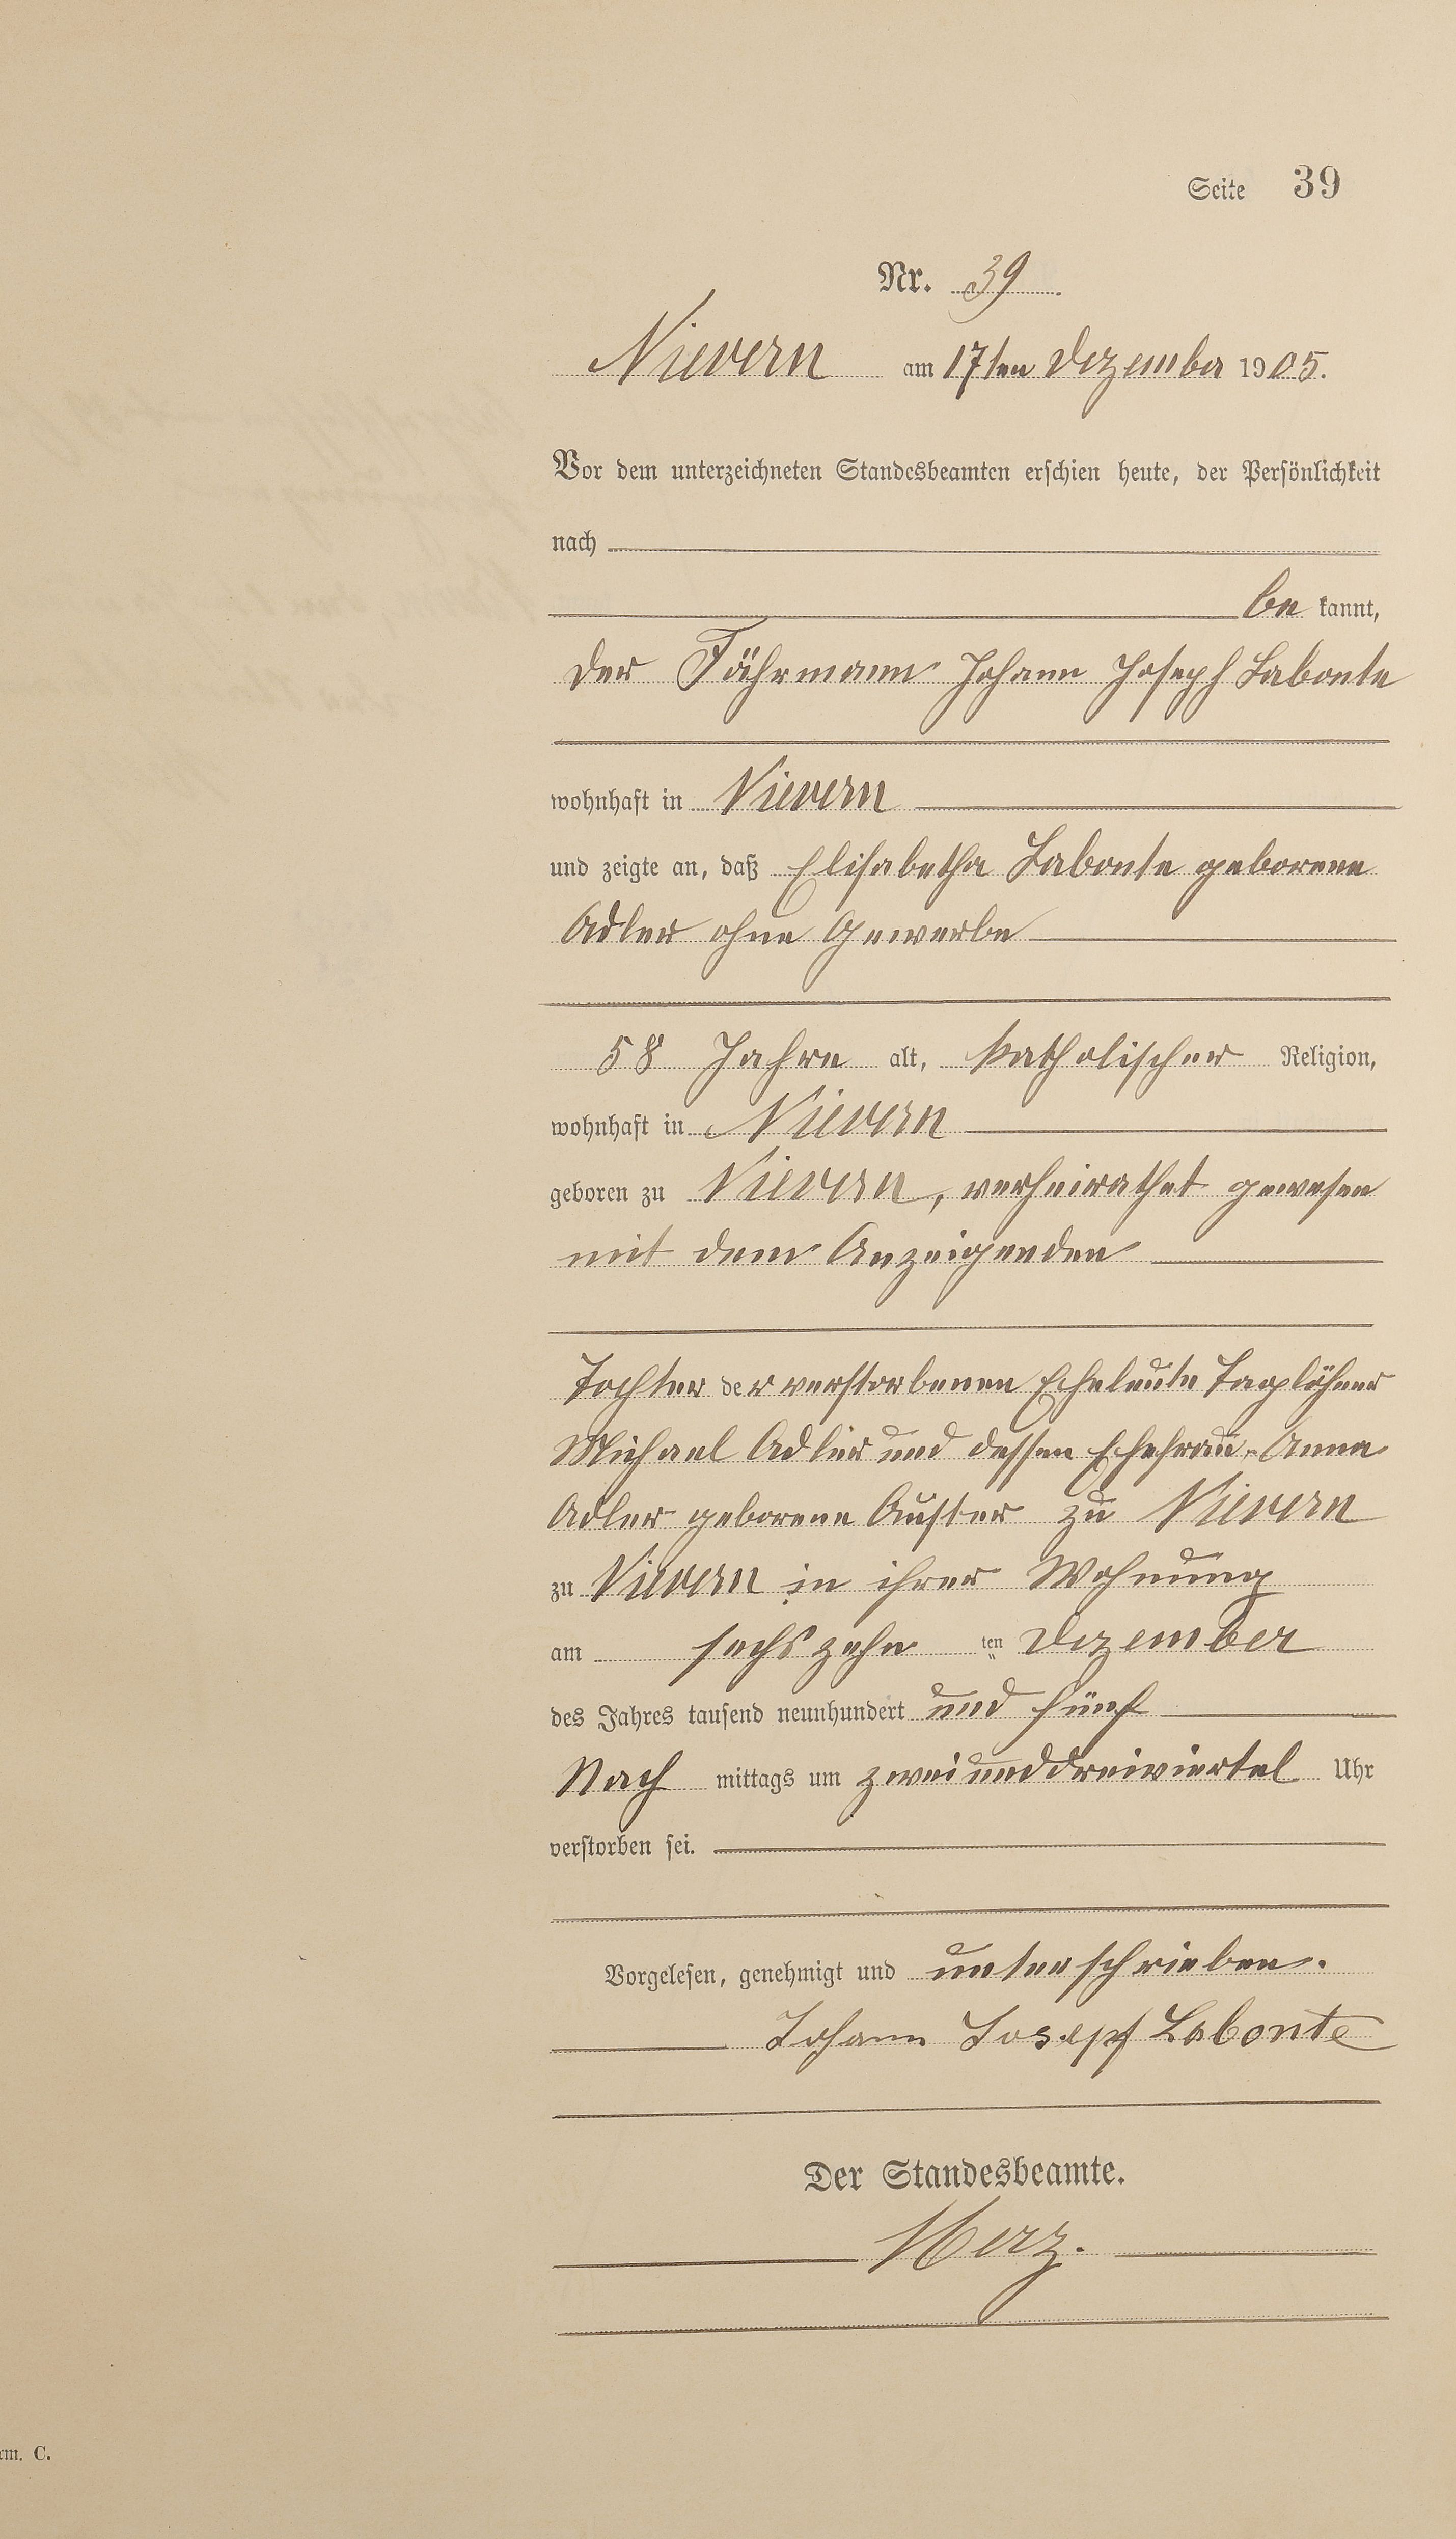 Seite 39
Nr. 39.
Nievern am 17ten Dezember 1905.
Vor dem unterzeichneten Standesbeamten erschien heute, der Persönlichkeit
nach
be kannt,
der Fährmann Johann Joseph Labonte
wohnhaft in Nievern
und zeigte an, daß Elisabetha Labonte geborene
Adler ohne Gewerbe
58 Jahre alt, katholischer Religion,
wohnhaft in Nievern
geboren zu Nievern, verheirathet gewesen
mit dem Anzeigenden
Tochter der verstorbenen Eheleute Taglöhner
Michael Adler und dessen Ehefrau Anna
Adler geborene Auster zu Nievern
zu Nievern in ihrer Wohnung
am sechszehn ten Dezember
des Jahres tausend neunhundert und fünf
Nach mittags um zweiunddreiviertel Uhr
verstorben sei.
Vorgelesen, genehmigt und unterschrieben.
Johann Josepf Labonte
Der Standesbeamte.
Merz.
rm. C.